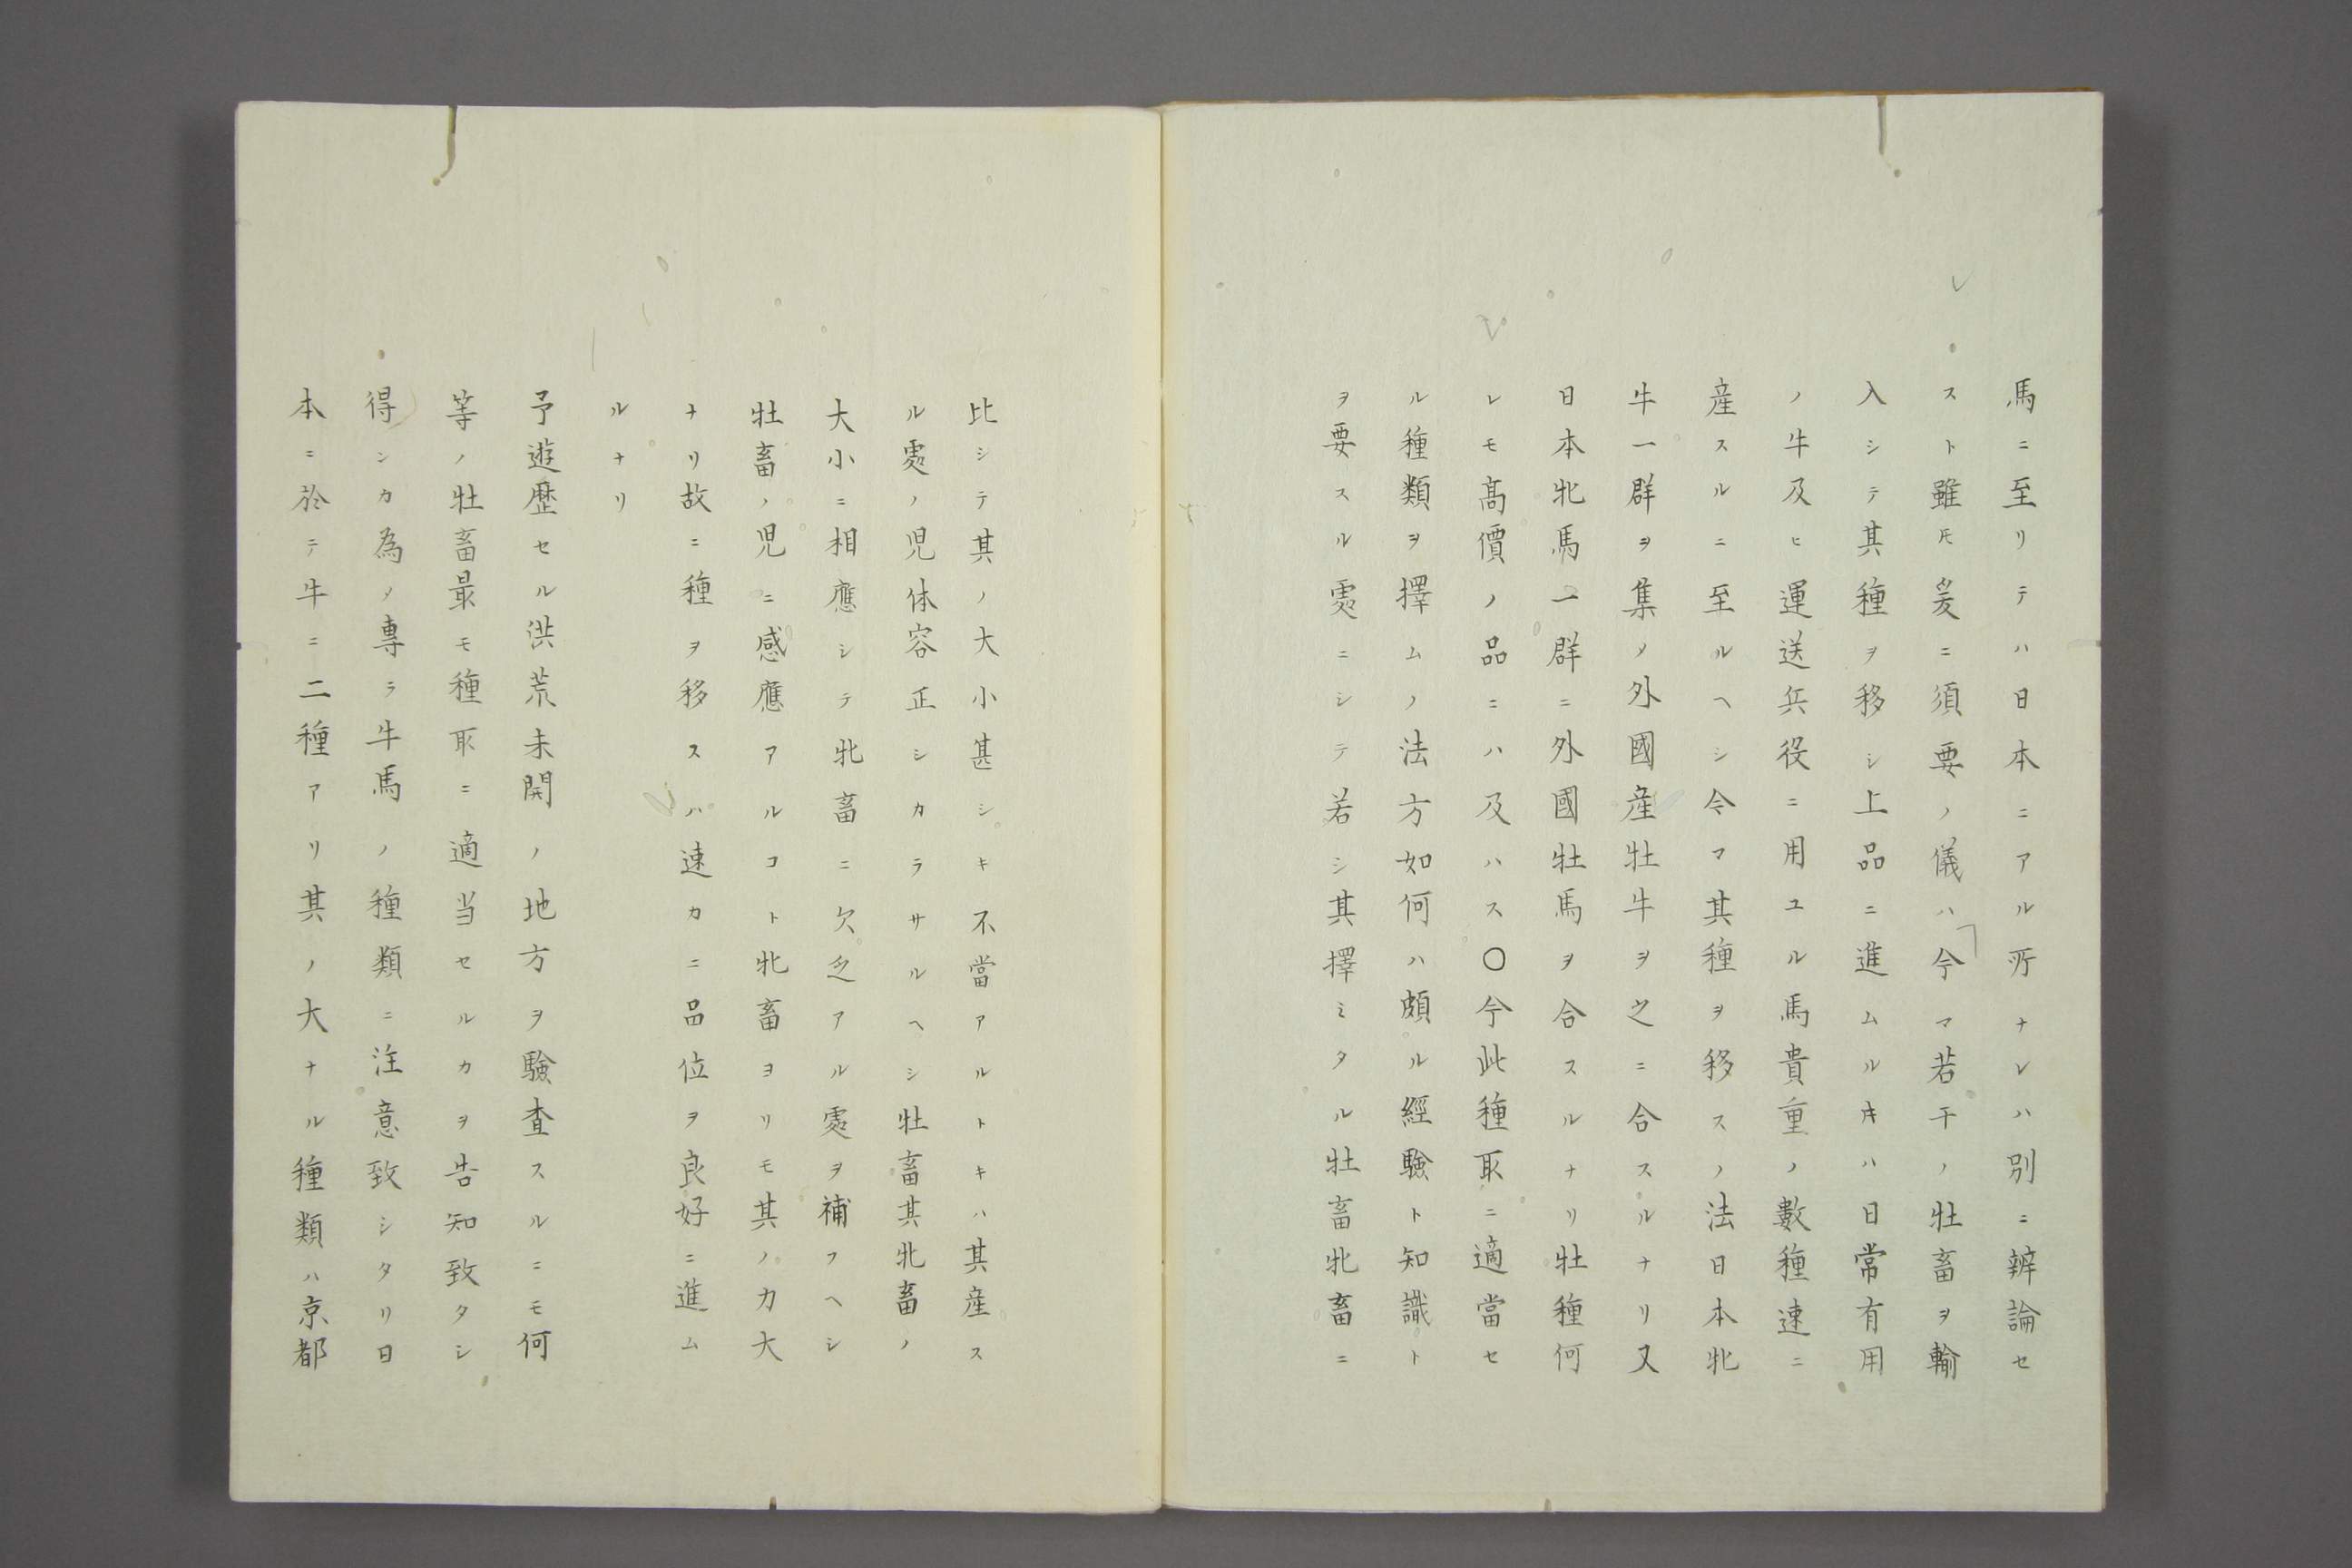 馬ニ至リテハ日本ニアル所ナレハ別ニ辨論セ
スト雖モ爰ニ須要ノ儀ハ今マ若干ノ牡畜ヲ輸
入シテ其種ヲ移シ上品ニ進ムルキハ日常有用
ノ牛及ヒ運送兵役ニ用ユル馬貴重ノ數種速ニ
産スルニ至ルヘシ今マ其種ヲ移スノ法日本牝
牛一群ヲ集メ外國産牡牛ヲ之ニ合スルナリ又
日本牝馬一群ニ外國牡馬ヲ合スルナリ牡種何
レモ高價ノ品ニハ及ハス〇今此種取ニ適當セ
ル種類ヲ擇ムノ法方如何ハ頗ル經驗ト知識ト
ヲ要スル處ニシテ若シ其擇ミタル牡畜牝畜ニ
比シテ其ノ大小甚シキ不當アルトキハ其産ス
ル處ノ児体容正シカラサルヘシ牡畜其牝畜ノ
大小ニ相應シテ牝畜ニ欠乏アル處ヲ補フヘシ
牡畜ノ児ニ感應アルコト牝畜ヨリモ其ノ力大
ナリ故ニ種ヲ移スハ速カニ品位ヲ良好ニ進ム
ルナリ
予遊歴セル洪荒未開ノ地方ヲ驗査スルニモ何
等ノ牡畜最モ種取ニ適当セルカヲ告知致タシ
得ンカ為メ専ラ牛馬ノ種類ニ注意致シタリ日
本ニ於テ牛ニ二種アリ其ノ大ナル種類ハ京都